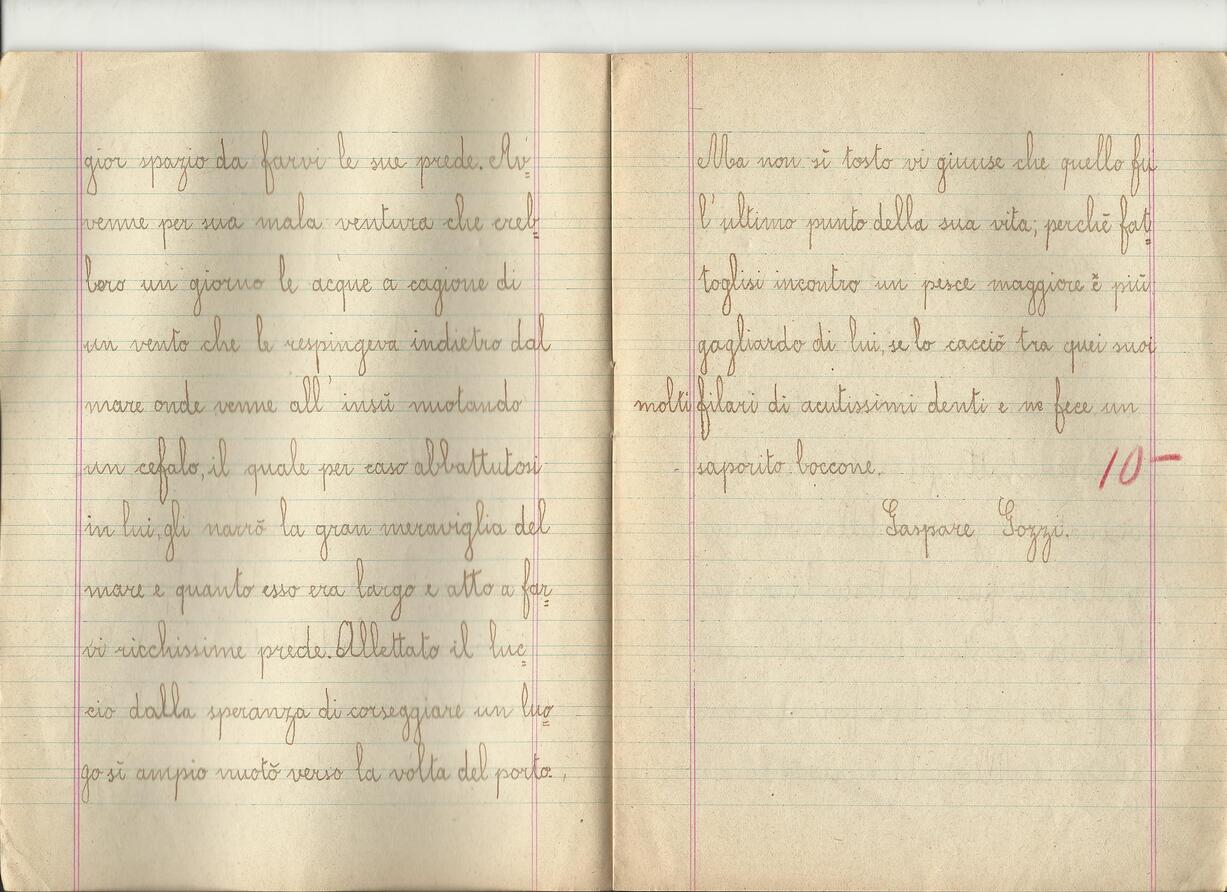 gior spazio da farvi le sue prede. Av=
venne per sua mala ventura che creb=
bero un giorno le acque a cagione di
un vento che le respingeva indietro dal
mare onde venne all'insù nuotando
un cefalo, il quale per caso abbattutosi
in lui, gli narrò la gran meraviglia del
mare e quanto esso era largo e atto a far=
vi ricchissime prede. Allettato il luc=
cio dalla speranza di corseggiare un luo=
go sì ampio nuotò verso la volta del porto.
Ma non sì tosto vi giunse che quello fu
l'ultimo punto della sua vita; perchè fat=
toglisi incontro un pesce maggiore e più
gagliardo di lui, se lo cacciò tra quei suoi
molti filari di acutissimi denti e ne fece un
saporito boccone.
10-
Gaspare Gozzi.